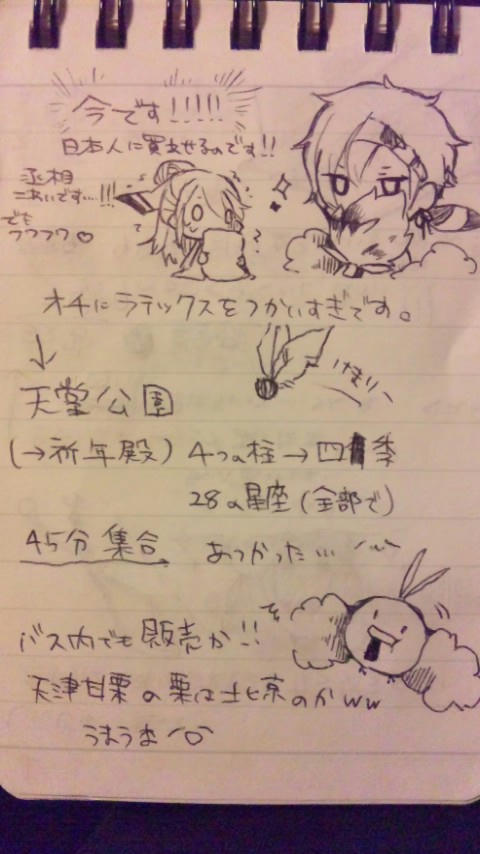 今です!!!!!
日本人に買わせるのです!!
丞相
こわいです…!!!
でも
フワフワ♡
オチにラテックスをつかいすぎです。
↓
天堂公園
けまりー
(→祈年殿) 4つの柱→四季
28の星座(全部で)
45分集合 あつかった…
バス内でも販売か!!
天津甘栗の栗は北京のかww
うまうま